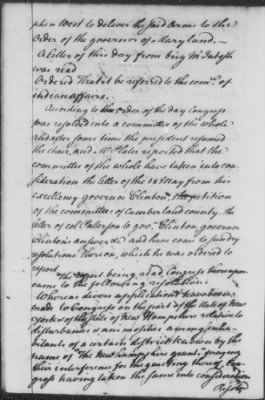 phen West to deliver the said Arms to the
Order of the governor of Maryland. —
A letter of this day from brig McIntosh
was read
Ordered That it be referred to the comee of
indian affairs.
According to the Order of the day Congress
was resolved into a committee of the whole
and after some time the president resumed
the chair, and Mr Plater reported that the
committee of the whole have taken into con
sideration the letter of the 18 May from his
excellency governor Clinton, the petition
of the committees of Cumberland county, the
letter of col Patterson to gov. Clinton governor
Clinton's answer &c and have come to sundry
resolutions thereon, which he was ordered to
report.
The report being read Congress thereupon
came to the following resolutions
Whereas divers applications have been
made to Congress on the part of the state of New
York & of the state of New Hampshire relative to
disturbances & animosities among inhab
itants of a certain district known by the
name of "The New hampshire grants" praying
their interference for the quieting thereof Con
gress having taken the same into consideration
Resolved